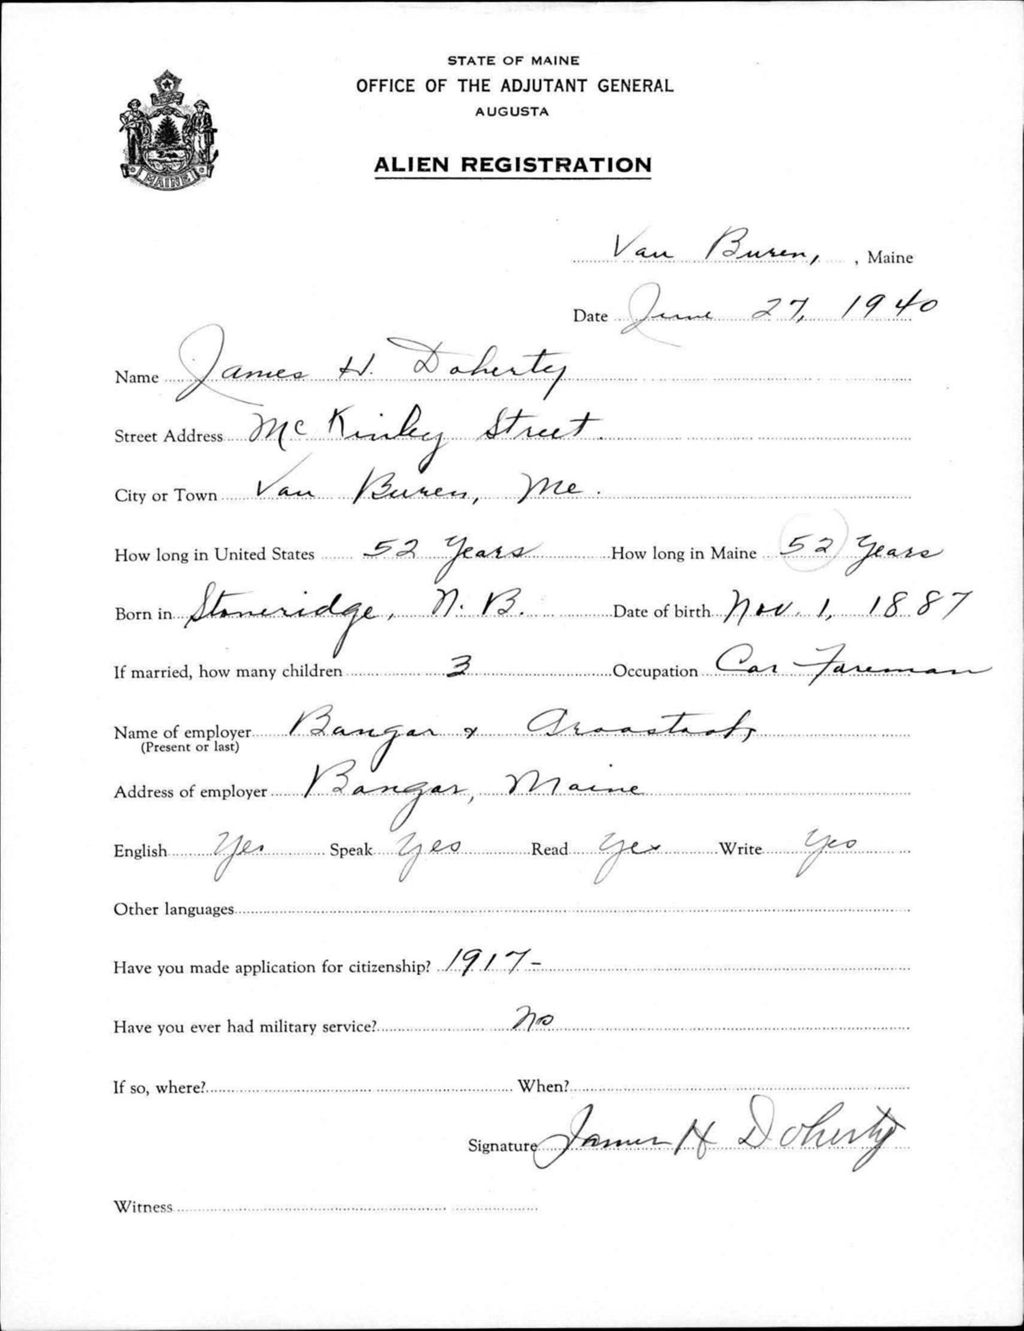 STATE OF MAINE
OFFICE OF THE ADJUTANT GENERAL
AUGUSTA
ALIEN REGISTRATION
MAINE
Van Buren, , Maine
Date June 27, 1940
Name James H. Doherty
Street Address McKinley Street.
City or Town Van Buren, Me.
How long in United States 52 Years How long in Maine 52 Years
Born in Stoneridge, N. B. Date of birth Nov. 1, 1887
If married, how many children 3 Occupation Car Foreman
Name of employer Bangor & Aroostook
(Present or last)
Address of employer Bangor, Maine
English Yes Speak Yes Read Yes Write Yes
Other languages
Have you made application for citizenship? 1917-
Have you ever had military service? No
If so, where? When?
Signature James H Doherty
Witness